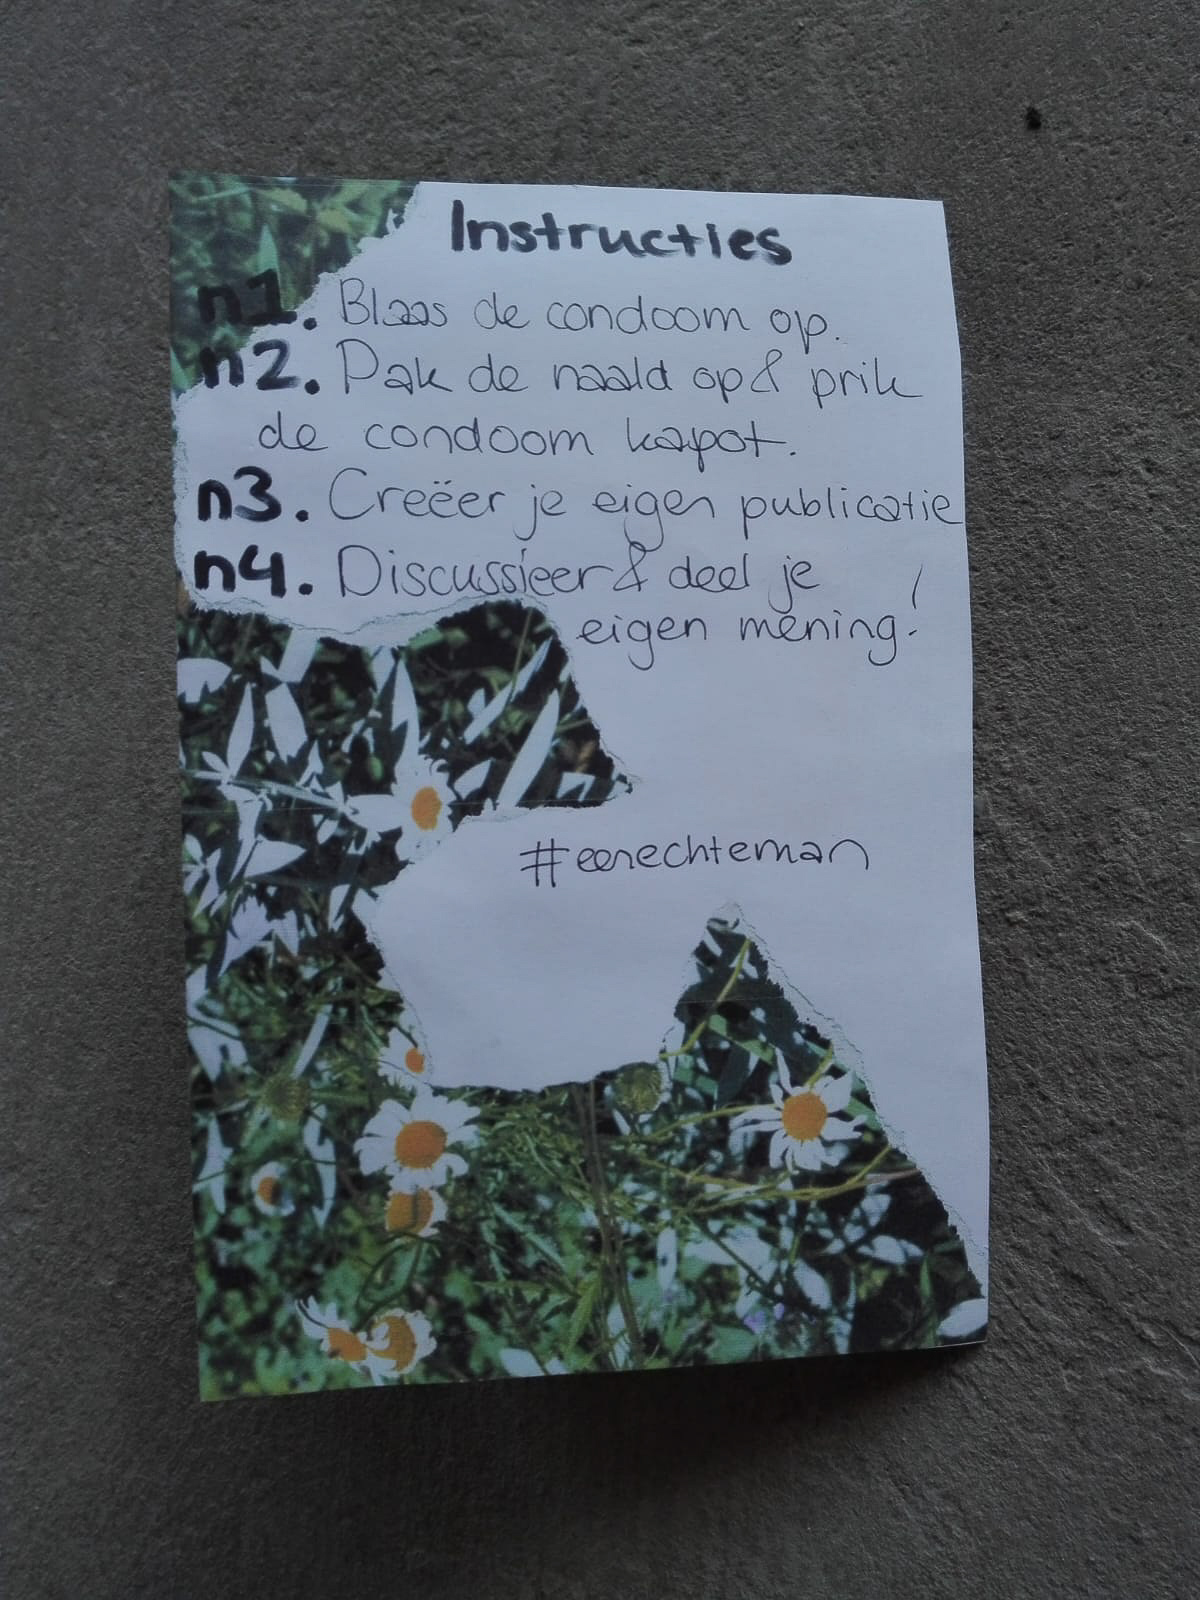 Instructies
n1. Blaas de condoom op.
n2. Pak de naald op & prik
de condoom kapot.
n3. Creëer je eigen publicatie
n4. Discussieer & deel je
eigen mening!
#eenechteman